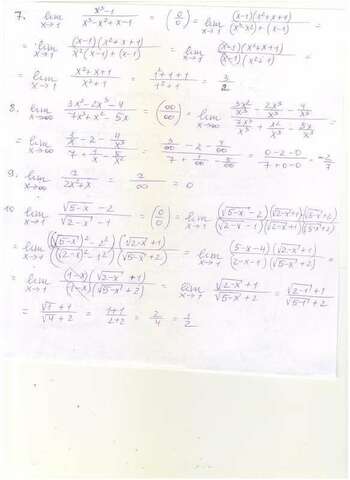 7. lim x→1 (x³-1)/(x³-x²+x-1) = (0/0) = lim x→1 ((x-1)(x²+x+1))/((x³-x²)+(x-1)) =
= lim x→1 ((x-1)(x²+x+1))/(x²(x-1)+(x-1)) = lim x→1 ((x-1)(x²+x+1))/((x-1)(x²+1)) =
= lim x→1 (x²+x+1)/(x²+1) = (1²+1+1)/(1²+1) = 3/2
8. lim x→∞ (3x²-2x³-4)/(7x³+x²-5x) = (∞/∞) = lim x→∞ (3x²/x³ - 2x³/x³ - 4/x³)/(7x³/x³ + x²/x³ - 5x/x³) =
= lim x→∞ (3/x - 2 - 4/x³)/(7 + 1/x - 5/x²) = (3/∞ - 2 - 4/∞)/(7 + 1/∞ - 5/∞) = (0-2-0)/(7+0-0) = -2/7
9. lim x→∞ 2/(2x²+x) 2/∞ = 0
10. lim x→1 (√5-x - 2)/(√2-x - 1) = (0/0) = lim x→1 ((√5-x - 2)(√2-x+1)(√5-x+2))/((√2-x - 1)(√2-x+1)(√5-x+2)) =
= lim x→1 (((√5-x)² - 2²)(√2-x+1))/(((√2-x)² - 1²)(√5-x+2)) = lim x→1 ((5-x-4)(√2-x+1))/((2-x-1)(√5-x+2)) =
= lim x→1 ((1-x)(√2-x+1))/((1-x)(√5-x+2)) = lim x→1 (√2-x+1)/(√5-x+2) = (√2-1+1)/(√5-1+2) =
= (√1+1)/(√4+2) = (1+1)/(2+2) = 2/4 = 1/2